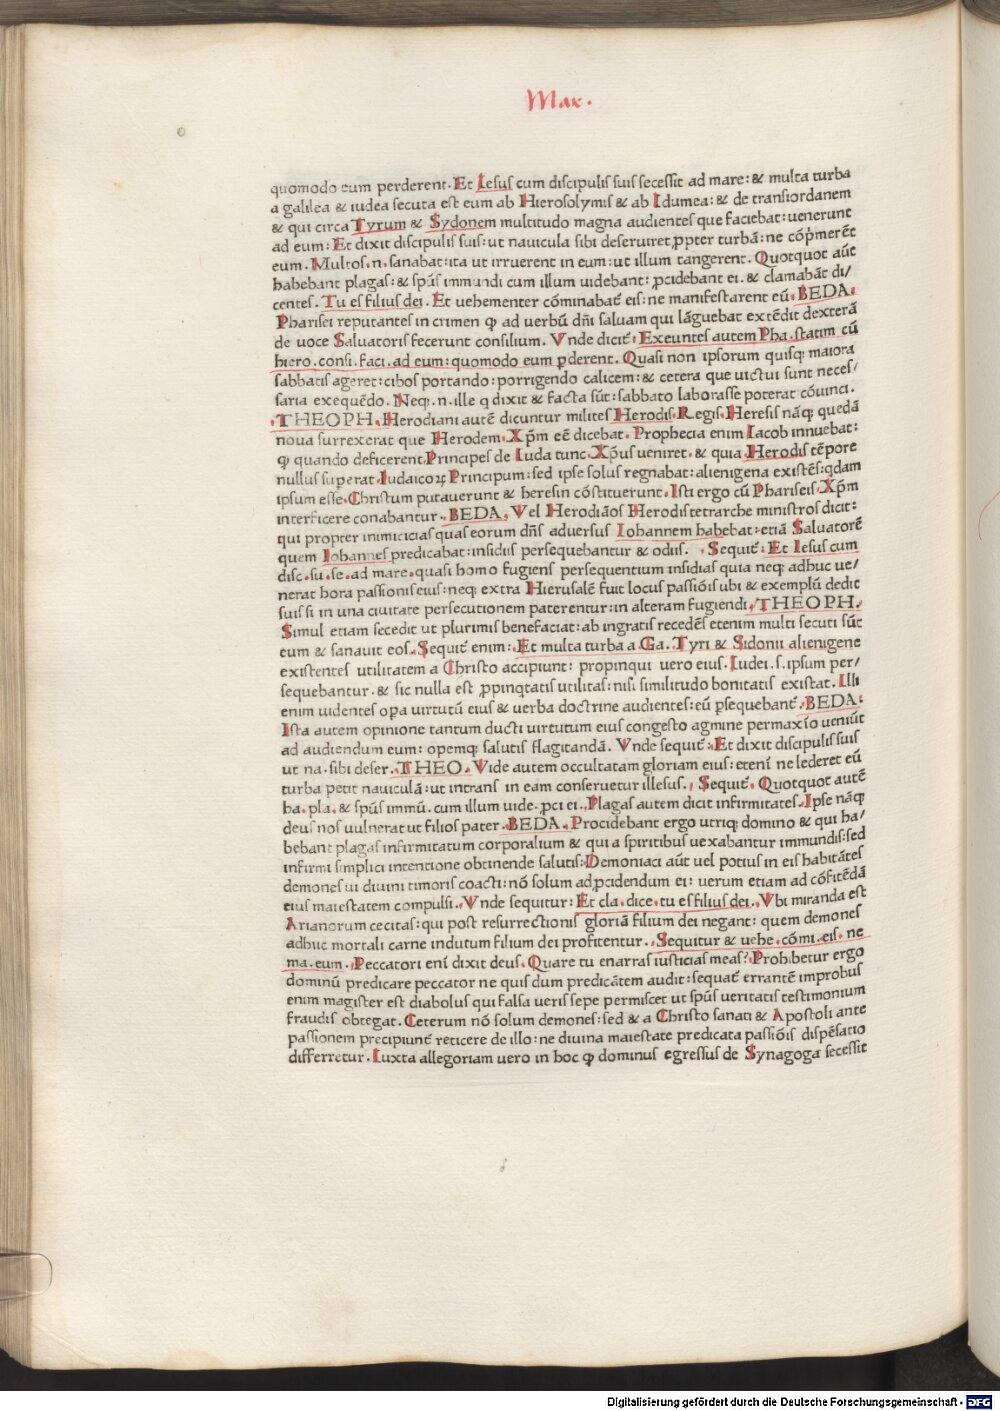 Max.
quomodo eum perderent. Et Iesus cum discipulis suis secessit ad mare: & multa turba
a galilea & iudea secuta est eum ab Hierosolymis & ab Idumea: & de transiordanem
& qui circa Tyrum & Sydonem multitudo magna audientes que faciebat: uenerunt
ad eum: Et dixit discipulis suis: ut nauicula sibi deseruiret ꝓpter turbã: ne cõpͥmerẽt
eum. Multos .n. sanabat: ita ut irruerent in eum: ut illum tangerent. Quotquot aũt
habebant plagas: & spũs immundi cum illum uidebant: ꝓcidebant ei. & clamabãt di/
centes. Tu es filius dei. Et uehementer cõminabat̃ eis: ne manifestarent eũ. BEDA.
Pharisei reputantes in crimen ꝙ ad uerbũ dñi saluam qui lãguebat extẽdit dexterã
de uoce Saluatoris fecerunt consilium. Vnde dicit̃: Exeuntes autem Pha. statim cũ
hiero. consi. faci. ad eum: quomodo eum ꝑderent. Quasi non ipsorum quisqꝫ maiora
sabbatis ageret: cibos portando: porrigendo calicem: & cetera que uictui sunt neces/
saria exequẽdo. Neqꝫ .n. ille q dixit & facta sũt: sabbato laborasse poterat cõuinci.
THEOPH. Herodiani autẽ dicuntur milites Herodis. Regis. Heresis nãqꝫ quedã
noua surrexerat que Herodem. Xp̃m eẽ dicebat. Prophecia enim Iacob innuebat:
ꝙ quando deficerent Principes de Iuda tunc. Xp̃us ueniret. & quia Herodis tẽpore
nullus suꝑerat Iudaicoꝝ Principum: sed ipse solus regnabat: alienigena existẽs: qdam
ipsum esse. Christum putauerunt & heresin cõstituerunt. Isti ergo cũ Phariseis. Xp̃m
interficere conabantur. BEDA. Vel Herodiãos Herodis tetrarche ministros dicit:
qui propter inimicicias quas eorum dñs aduersus Iohannem habebat: etiã Saluatorẽ
quem Iohannes predicabat: insidiis persequebantur & odiis. Sequit̃: Et Iesus cum
disc. su. se. ad mare. quasi homo fugiens persequentium insidias quia neqꝫ adhuc ue/
nerat hora passionis eius: neqꝫ extra Hierusalẽ fuit locus passiõis ubi & exemplũ dedit
suis si in una ciuitate persecutionem paterentur: in alteram fugiendi. THEOPH.
Simul etiam secedit ut plurimis benefaciat: ab ingratis recedẽs etenim multi secuti sũt
eum & sanauit eos. Sequit̃ enim: Et multa turba a Ga. Tyri & Sidonii alienigene
existentes utilitatem a Christo accipiunt: propinqui uero eius. Iudei .s. ipsum per/
sequebantur. & sic nulla est ꝓpinqtatis utilitas: nisi similitudo bonitatis existat. Illi
enim uidentes oꝑa uirtutũ eius & uerba doctrine audientes: eũ ꝑsequebant̃. BEDA:
Ista autem opinione tantum ducti uirtutum eius congesto agmine permaxĩo ueniũt
ad audiendum eum: opemqꝫ salutis flagitandã. Vnde sequit̃: Et dixit discipulis suis
ut na. sibi deser. THEO. Vide autem occultatam gloriam eius: etenĩ ne lederet eũ
turba petit nauiculã: ut intrans in eam conseruetur illesus. Sequit̃. Quotquot autẽ
ha. pla. & spũs immũ. cum illum uide. ꝓci ei. Plagas autem dicit infirmitates. Ipse nãqꝫ
deus nos uulnerat ut filios pater. BEDA. Procidebant ergo utriqꝫ domino & qui ha/
bebant plagas infirmitatum corporalium & qui a spiritibus uexabantur immundis: sed
infirmi simplici intentione obtinende salutis: Demoniaci aũt uel potius in eis habitãtes
demones ui diuini timoris coacti: nõ solum ad ꝓcidendum ei: uerum etiam ad cõfitẽdã
eius maiestatem compulsi. Vnde sequitur: Et cla. dice. tu es filius dei. Vbi miranda est
Arianorum cecitas: qui post resurrectionis gloriã filium dei negant: quem demones
adhuc mortali carne indutum filium dei profitentur. Sequitur & uehe. cõmi. eis. ne
ma. eum. Peccatori enĩ dixit deus. Quare tu enarras iusticias meas? Prohibetur ergo
dominũ predicare peccator ne quis dum predicãtem audit: sequat̃ errantẽ improbus
enim magister est diabolus qui falsa ueris sepe permiscet ut spũs ueritatis testimonium
fraudis obtegat. Ceterum nõ solum demones: sed & a Christo sanati & Apostoli ante
passionem precipiunt̃ reticere de illo: ne diuina maiestate predicata passiõis dispẽsatio
differretur. Iuxta allegoriam uero in hoc ꝙ dominus egressus de Synagoga secessit
Digitalisierung gefördert durch die Deutsche Forschungsgemeinschaft - DFG